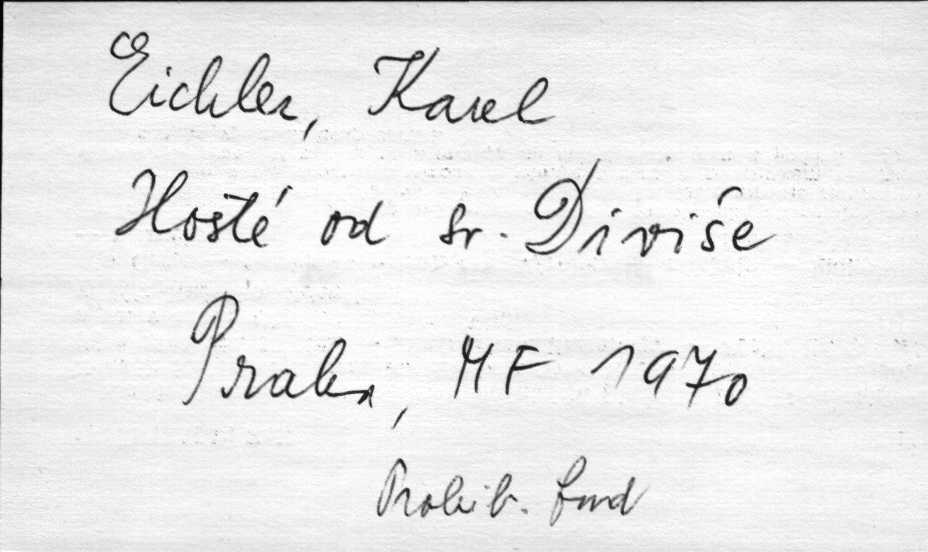 Eichler, Karel
Hosté od sv. Diviše
Praha, MF 1970
Prohib. fond